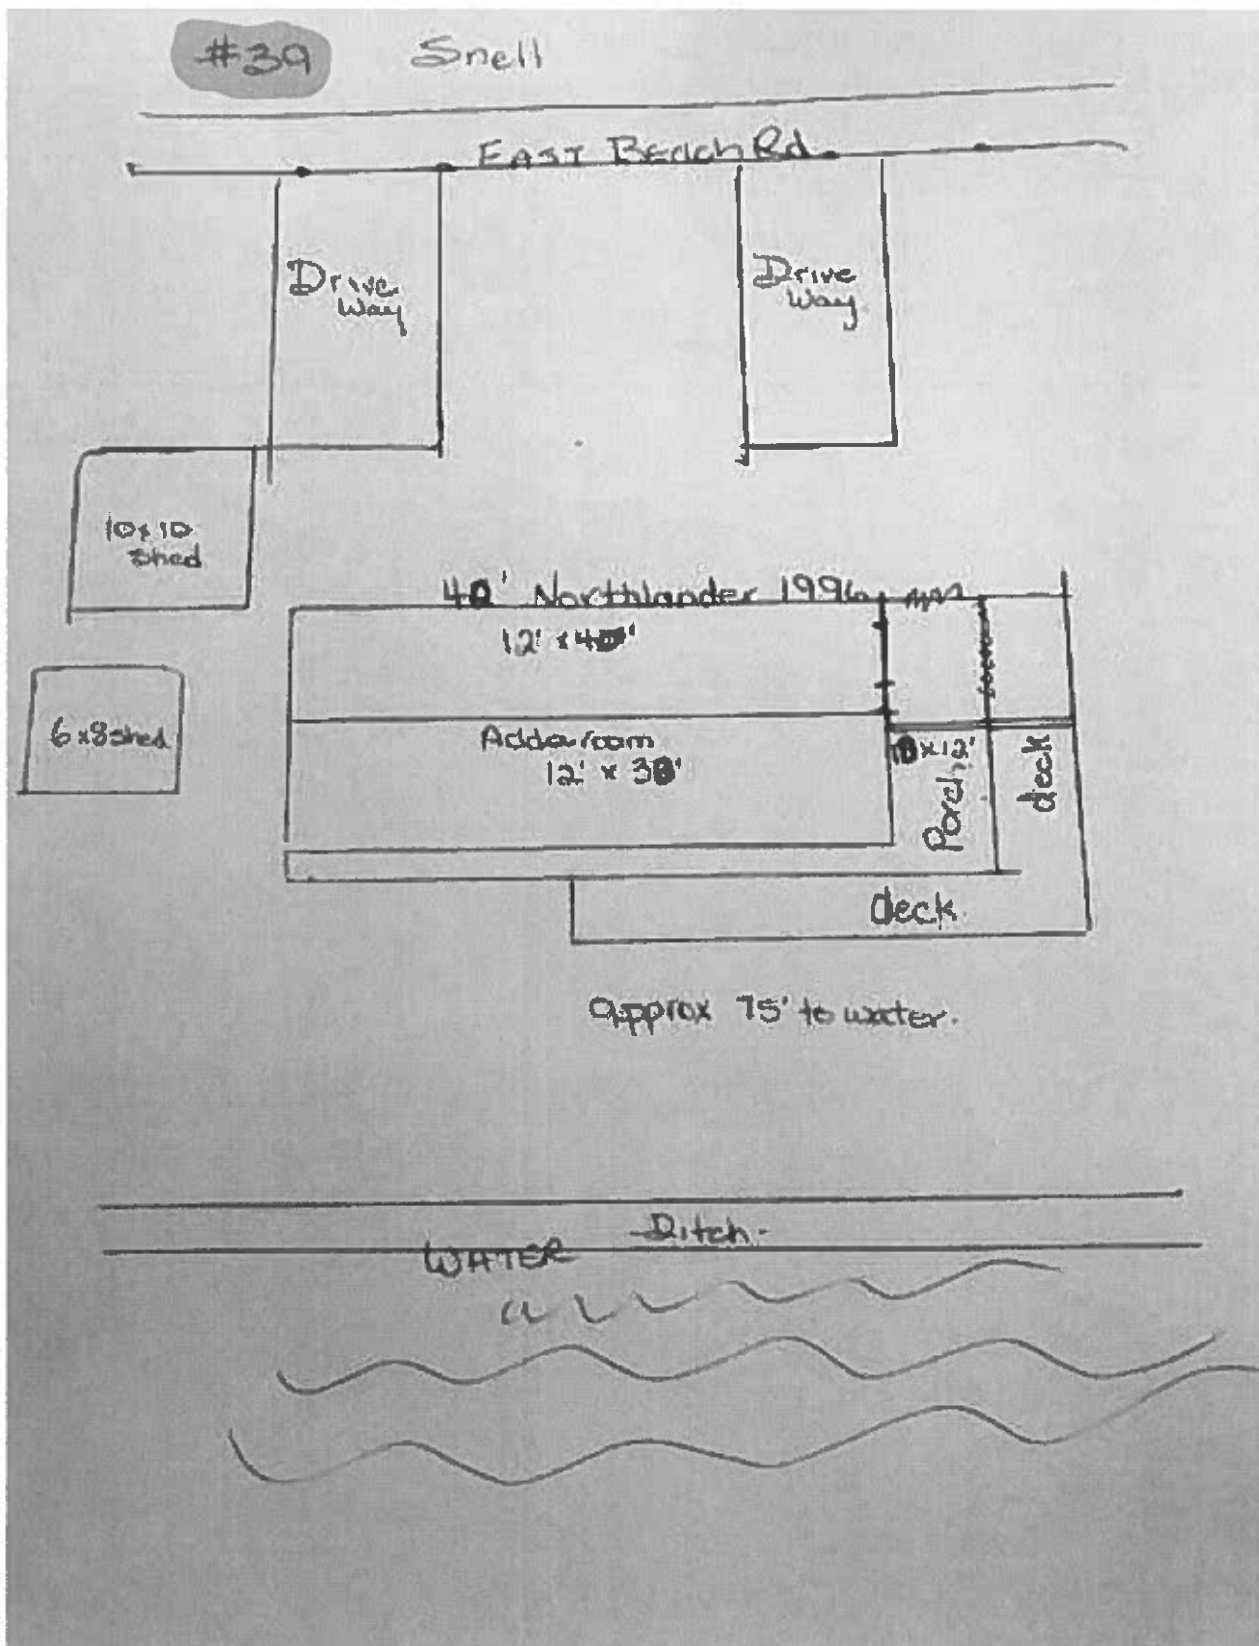 #39 Snell
EAST Beach Rd
Drive
Way
Drive
Way
10x10
Shed
40' Northlander 1996
12' x 40'
6x8 shed
Addaroom
12' x 30'
10x12'
Porch
deck
deck
approx 75' to water.
Ditch
WATER